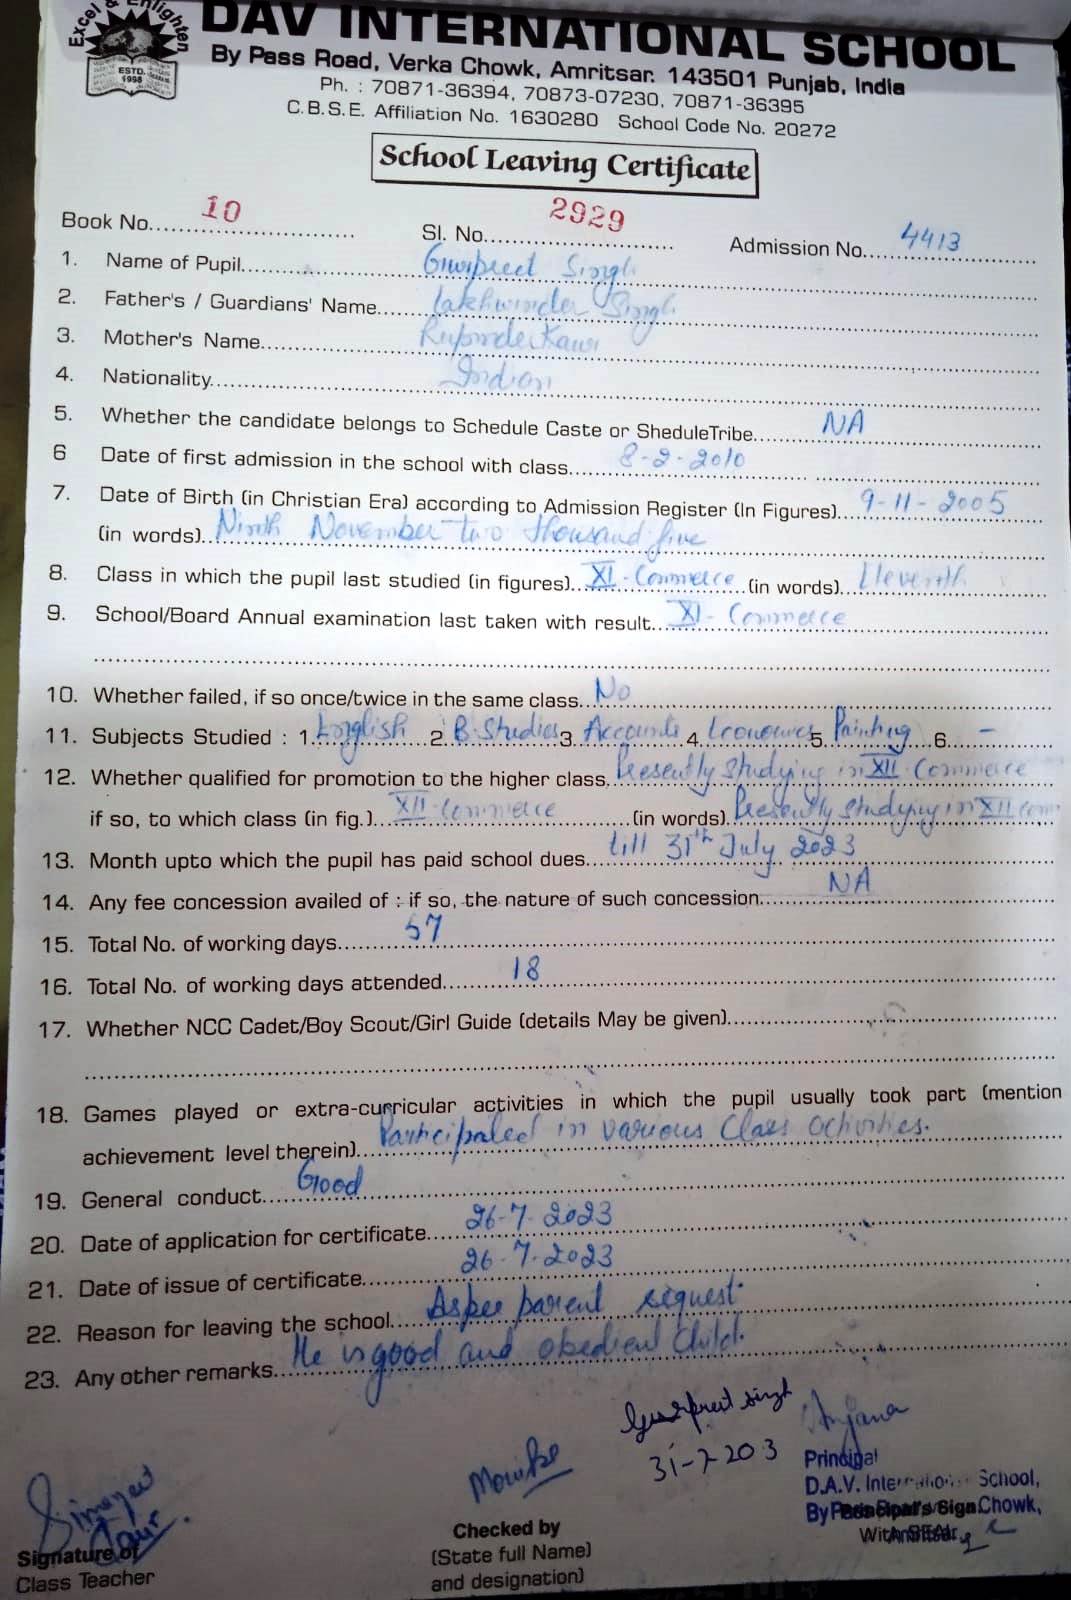 Excel & Enlighten
ESTD. 1998
DAV INTERNATIONAL SCHOOL
By Pass Road, Verka Chowk, Amritsar. 143501 Punjab, India
Ph. : 70871-36394, 70873-07230, 70871-36395
C.B.S.E. Affiliation No. 1630280 School Code No. 20272
School Leaving Certificate
Book No. 10 Sl. No. 2929 Admission No. 4413
1. Name of Pupil Gurpreet Singh
2. Father's / Guardians' Name Lakhwinder Singh
3. Mother's Name Rupinder Kaur
4. Nationality Indian
5. Whether the candidate belongs to Schedule Caste or SheduleTribe NA
6 Date of first admission in the school with class 8-2-2010
7. Date of Birth (in Christian Era) according to Admission Register (In Figures) 9-11-2005
(in words) Ninth November two thousand five
8. Class in which the pupil last studied (in figures) XI-Commerce (in words) Eleventh
9. School/Board Annual examination last taken with result XI-Commerce
10. Whether failed, if so once/twice in the same class No
11. Subjects Studied : 1. English 2. B.Studies 3. Accounts 4. Economics 5. Painting 6. -
12. Whether qualified for promotion to the higher class Presently studying in XII-Commerce
if so, to which class (in fig.) XII-Commerce (in words) Presently studying in XII com
13. Month upto which the pupil has paid school dues till 31th July 2023
14. Any fee concession availed of : if so, the nature of such concession NA
15. Total No. of working days 57
16. Total No. of working days attended 18
17. Whether NCC Cadet/Boy Scout/Girl Guide (details May be given)
18. Games played or extra-curricular activities in which the pupil usually took part (mention
achievement level therein) Participated in various Class activities.
19. General conduct Good
20. Date of application for certificate 26-7-2023
21. Date of issue of certificate 26-7-2023
22. Reason for leaving the school As per parent request.
23. Any other remarks He is good and obedient child.
Gurpreet Singh
31-7-203
Anjana
Principal
D.A.V. International School,
By Pass Road, Verka Chowk,
Amritsar
Principal's Sign
With SEAL
Monika
Checked by
(State full Name)
and designation)
Simrjeet Kaur
Signature of
Class Teacher